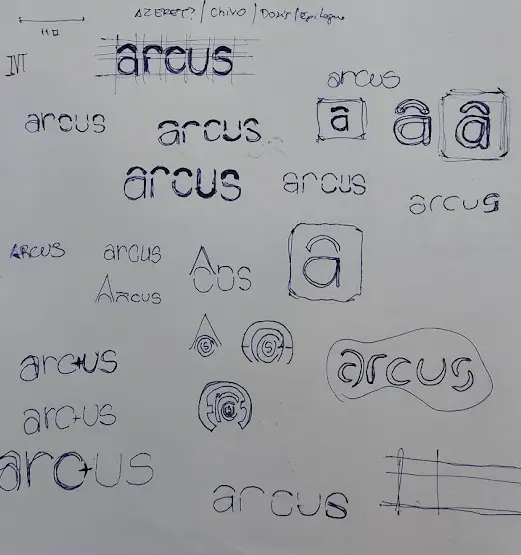 AZERET? / Chivo / Dosis / Epilogue
110
arcus
arcus
arcus
arcus
â
â
â
arcus
arcus
arcus
ARCUS
arcus
Arcus
â
arc+us
arc+us
arc+us
arcus
arcus